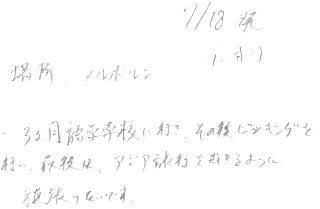 7/18
場所 メルボルン
・3ヶ月語学学校に行き、その後ピッキングを
行い、最後は、アジア旅行を出きるように
頑張りたいです。